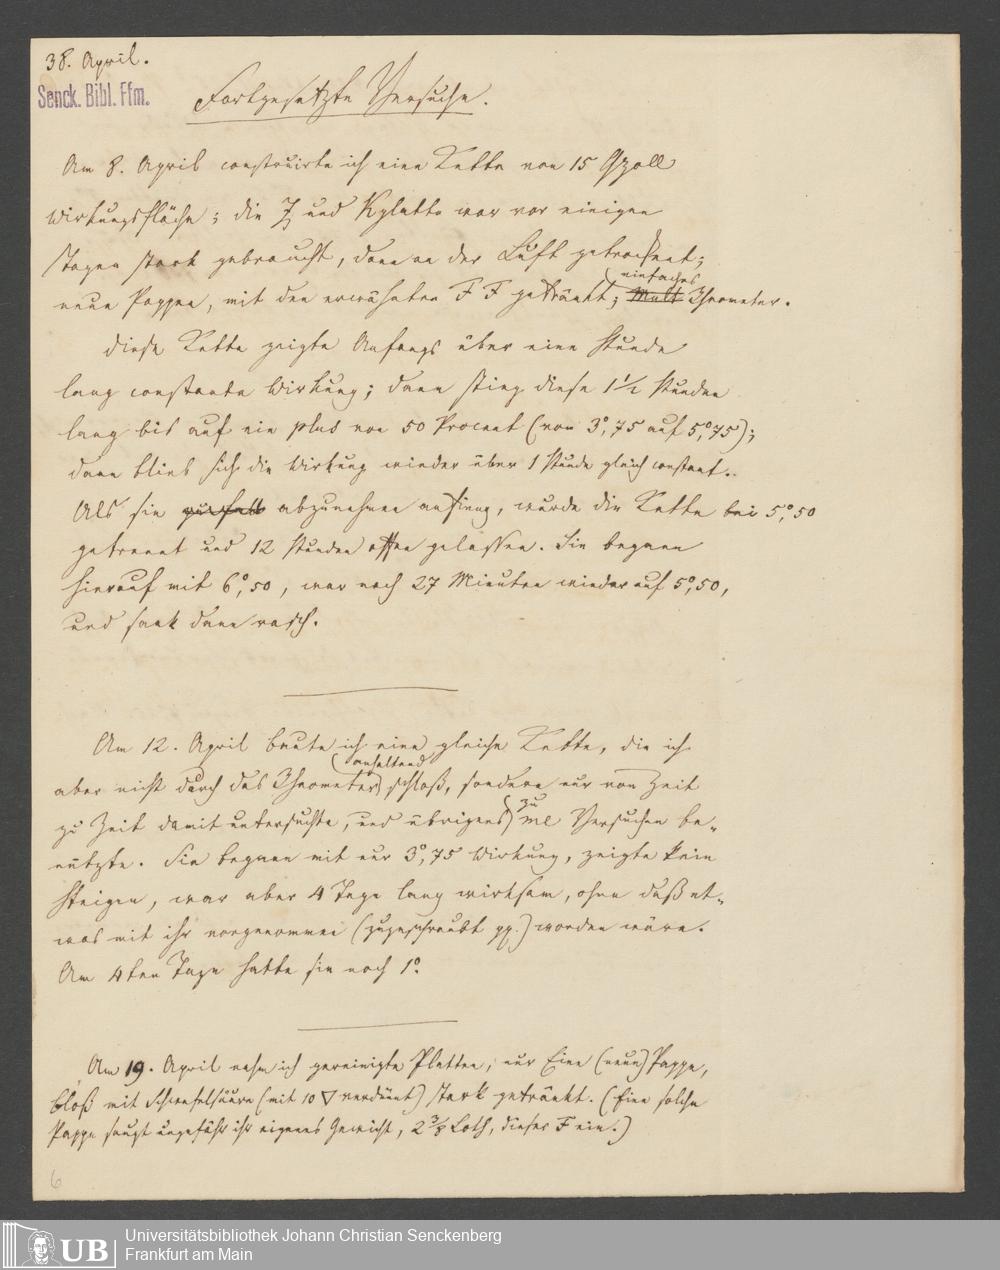 38. April.
Senck. Bibl. Ffm.
Fortgesetzte Versuche.
Am 8. April construirte ich eine Kette von 15 □zoll
Wirkungsfläche; die Z und Kplatte war vor einigen
Tagen stark gebraucht, dann an der Luft getrocknet;
einfaches
neue Pappen, mit den erwähnten F F getränkt; Mult Thrometer.
Diese Kette zeigte Anfangs über eine Stunde
lang constante Wirkung; dann stieg diese 1 1/2 Stunden
lang bis auf ein plus von 50 Procent (von 3°,75 auf 5°,75);
dann blieb sich die Wirkung wieder über 1 Stunde gleich constant.
Als sie abzunehmen anfieng, wurde die Kette bei 5°,50
getrennt und 12 Stunden offen gelassen. Sie begann
hierauf mit 6°,50, war nach 27 Minuten wieder auf 5°,50,
und sank dann rasch.
Am 12. April baute ich eine gleiche Kette, die ich
anhaltend
aber nicht durch das Thrometer schloß, sondern nur von Zeit
zu
zu Zeit damit untersuchte, und übrigens me Versuchen be-
nützte. Sie begann mit nur 3°,75 Wirkung, zeigte kein
Steigen, war aber 4 Tage lang wirksam, ohne daß et-
was mit ihr vorgenommen (zugeschraubt pp.) worden wäre.
Am 4ten Tage hatte sie noch 1°.
Am 19. April nahm ich gereinigte Platten, nur Eine (neue) Pappe,
bloß mit Schwefelsäure (mit 10 ▽ verdünnt) stark getränkt. (Eine solche
Pappe saugt ungefähr ihr eigenes Gewicht, 2 3/8 Loth, dieser F ein.)
6
UB
Universitätsbibliothek Johann Christian Senckenberg
Frankfurt am Main